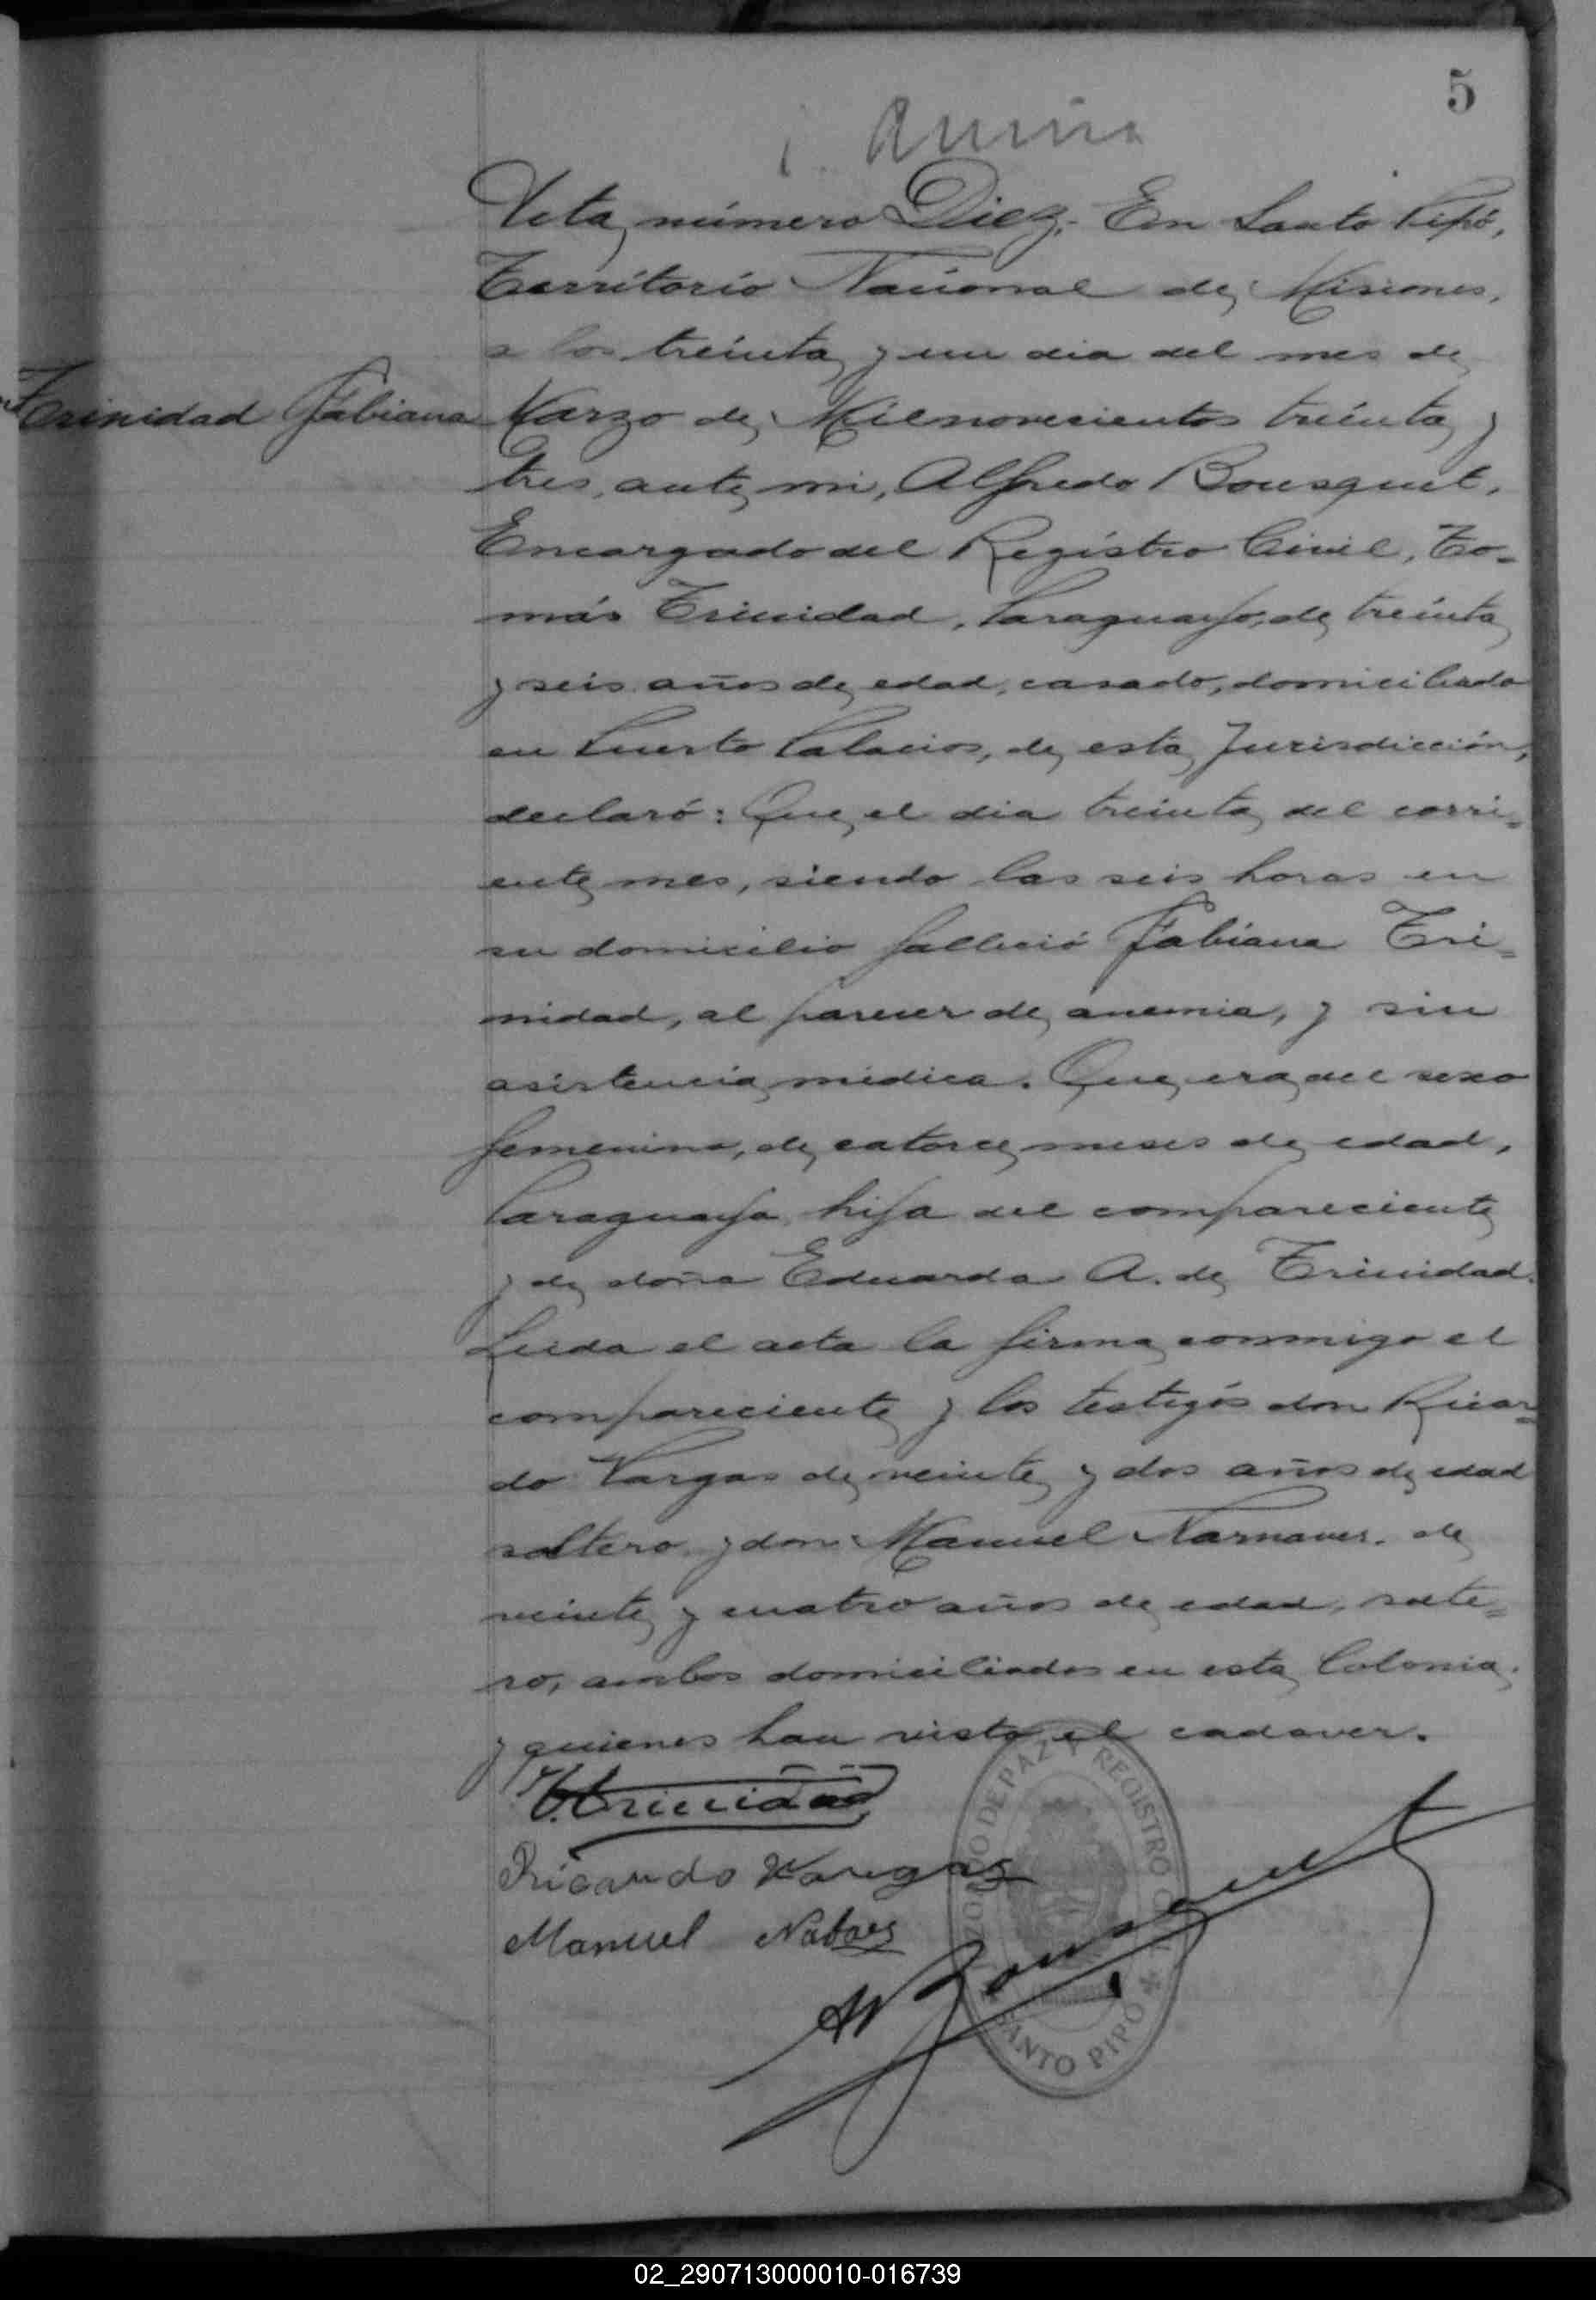 5
Acta número Diez. En Santo Pipó,
Territorio Nacional de Misiones,
a los treinta y un dia del mes de
Trinidad Fabiana
Marzo de Milnovecientos treinta y
tres, ante mi, Alfredo Bousquet,
Encargado del Registro Civil, To-
más Trinidad, Paraguayo, de treinta
y seis años de edad, casado, domiciliado
en Puerto Palacios, de esta Jurisdicción,
declaró: Que el dia treinta del corri-
ente mes, siendo las seis horas en
su domicilio falleció Fabiana Tri-
nidad, al parecer de anemia, y sin
asistencia médica. Que era del sexo
femenino, de catorce meses de edad,
Paraguaya, hija del compareciente
y de doña Eduarda A. de Trinidad.
Leida el acta la firma conmigo el
compareciente y los testigos don Ricar-
do Vargas de veinte y dos años de edad
soltero y don Manuel de
veinte y cuatro años de edad, solte-
ro, ambos domiciliados en esta Colonia,
y quienes han visto el cadaver.
T. Trinidad
Ricardo Vargas
Manuel
A Bousquet
JUZGADO DE PAZ Y REGISTRO CIVIL
SANTO PIPO
02_290713000010-016739